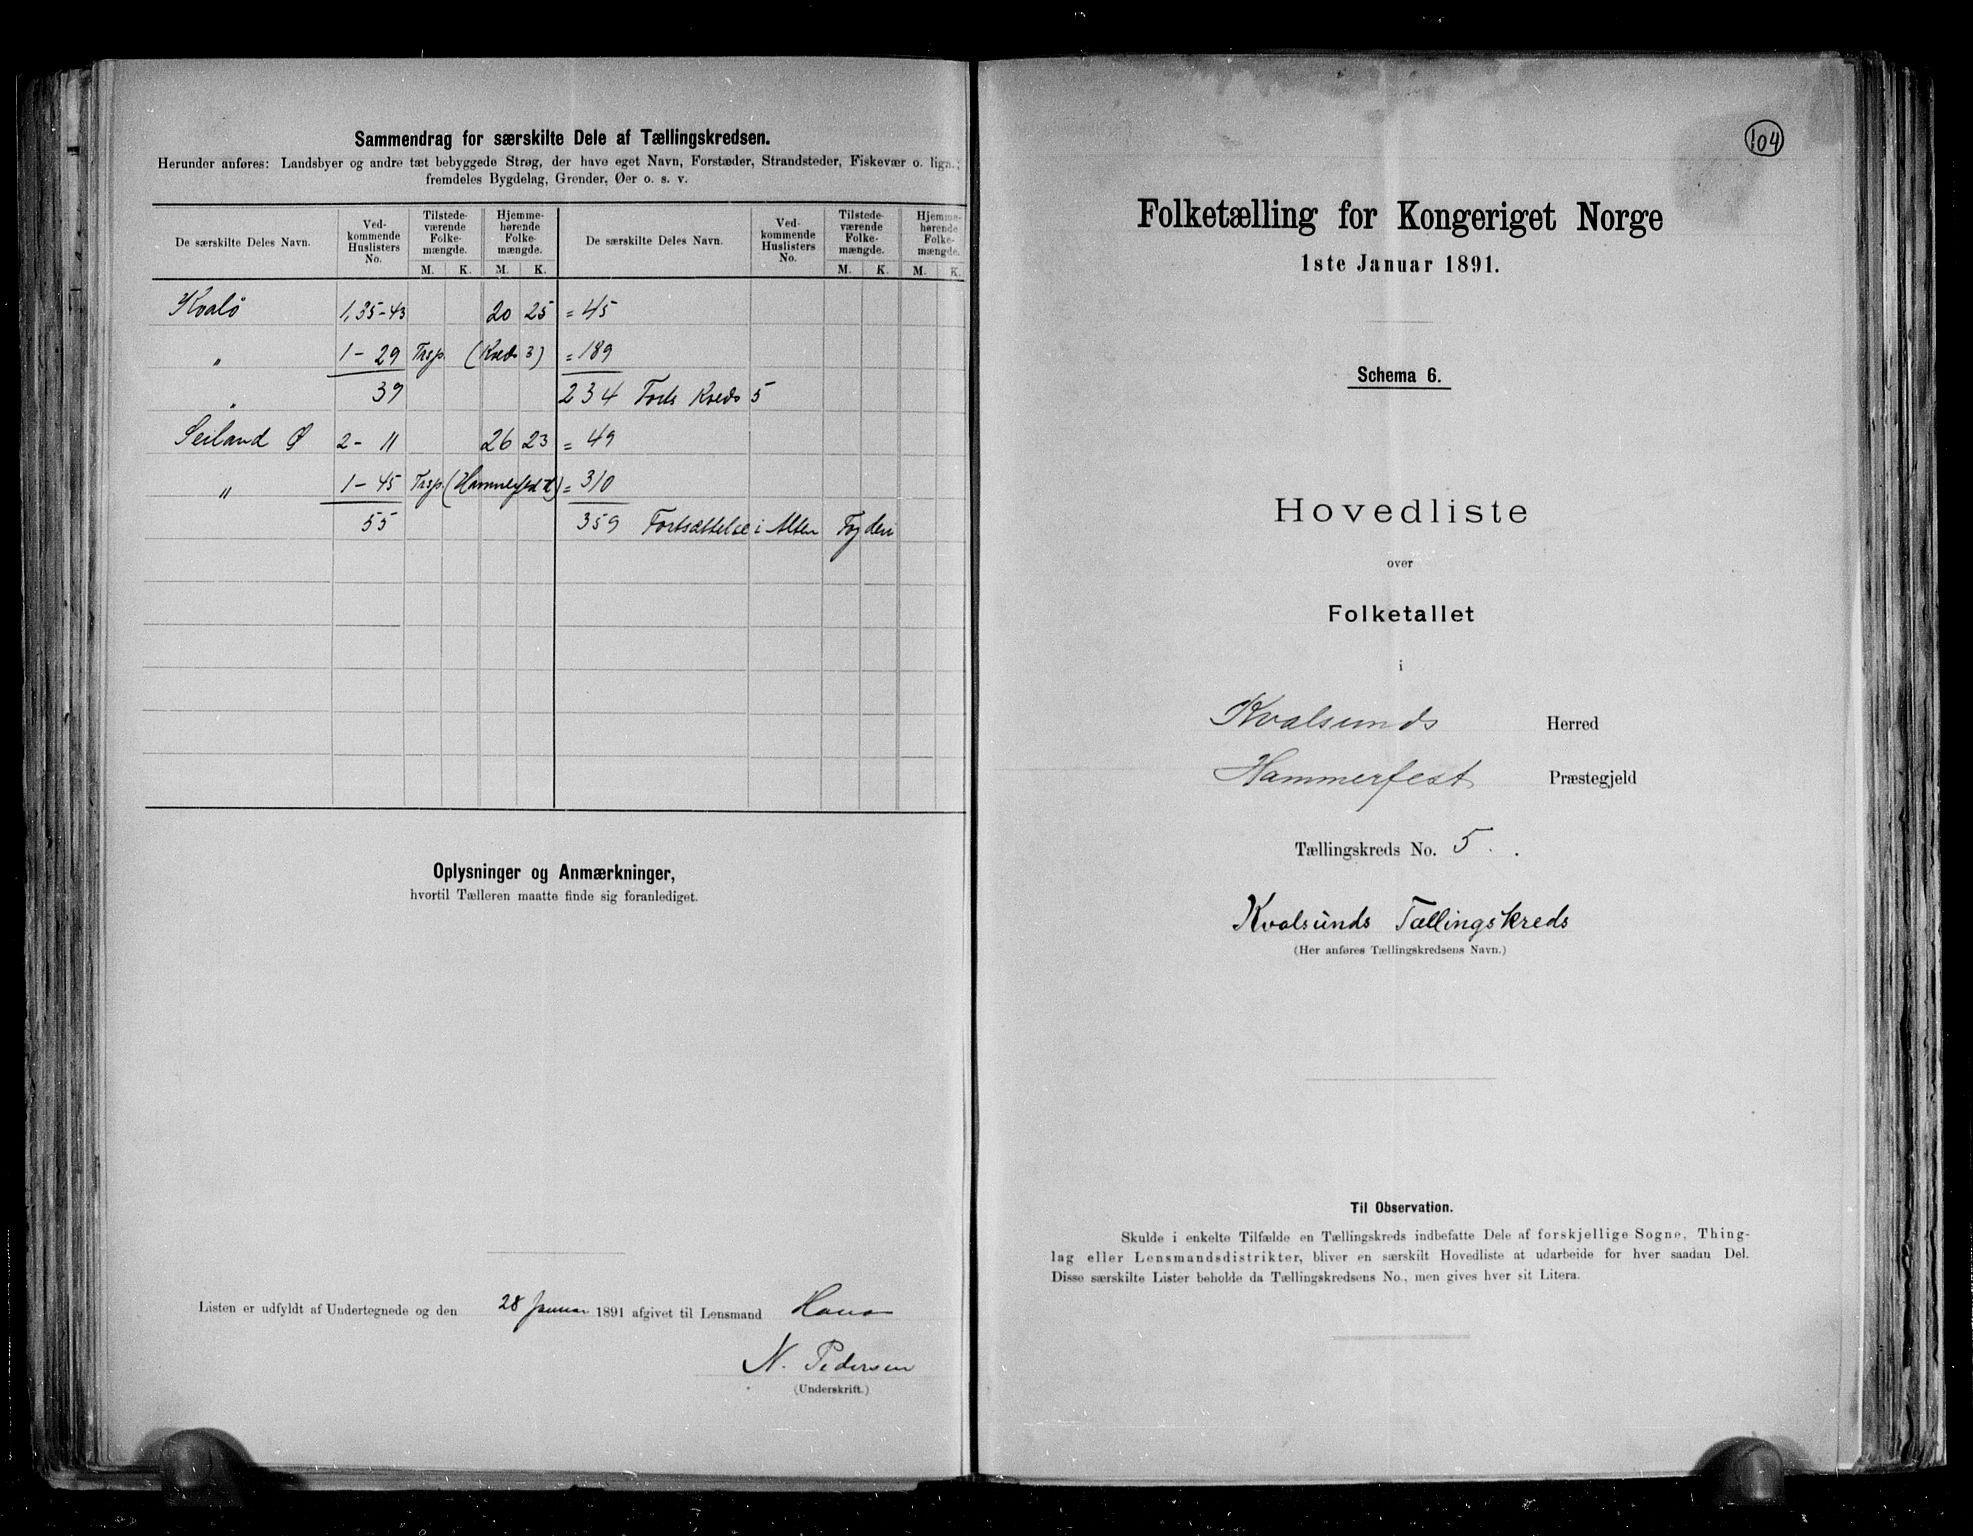 Sammendrag for særskilte Dele af Tællingskredsen.
Herunder anføres: Landsbyer og andre tæt bebyggede Strøg, der have eget Navn, Forstæder, Strandsteder, Fiskevær o. lign.;
fremdeles Bygdelag, Grender, Øer o. s. v.
De særskilte Deles Navn. Ved-kommende Huslisters No. Tilstede-værende Folke-mængde. Hjemme-hørende Folke-mængde. De særskilte Deles Navn. Ved-kommende Huslisters No. Tilstede-værende Folke-mængde. Hjemme-hørende Folke-mængde.
M. K. M. K. M. K. M. K.
Kvalø 1,35-43 20 25 = 45
" 1-29 Trsp. (Kreds 3) = 189
" 39 234 Forts Kreds 5
Seiland Ø 2-11 26 23 = 49
" 1-45 Trsp. (Hammerfest) = 310
55 359 Fortsættelse i Alten Fogderi
Oplysninger og Anmærkninger,
hvortil Tælleren maatte finde sig foranlediget.
Listen er udfyldt af Undertegnede og den 28 Januar 1891 afgivet til Lensmand
N. Pedersen
(Underskrift.)
104
Folketælling for Kongeriget Norge
1ste Januar 1891.
Schema 6.
Hovedliste
over
Folketallet
i
Kvalsunds Herred
Hammerfest Præstegjeld
Tællingskreds No. 5.
Kvalsunds Tællingskreds
(Her anføres Tællingskredsens Navn.)
Til Observation.
Skulde i enkelte Tilfælde en Tællingskreds indbefatte Dele af forskjellige Sogne, Thing-
lag eller Lensmandsdistrikter, bliver en særskilt Hovedliste at udarbeide for hver saadan Del.
Disse særskilte Lister beholde da Tællingskredsens No., men gives hver sit Litera.